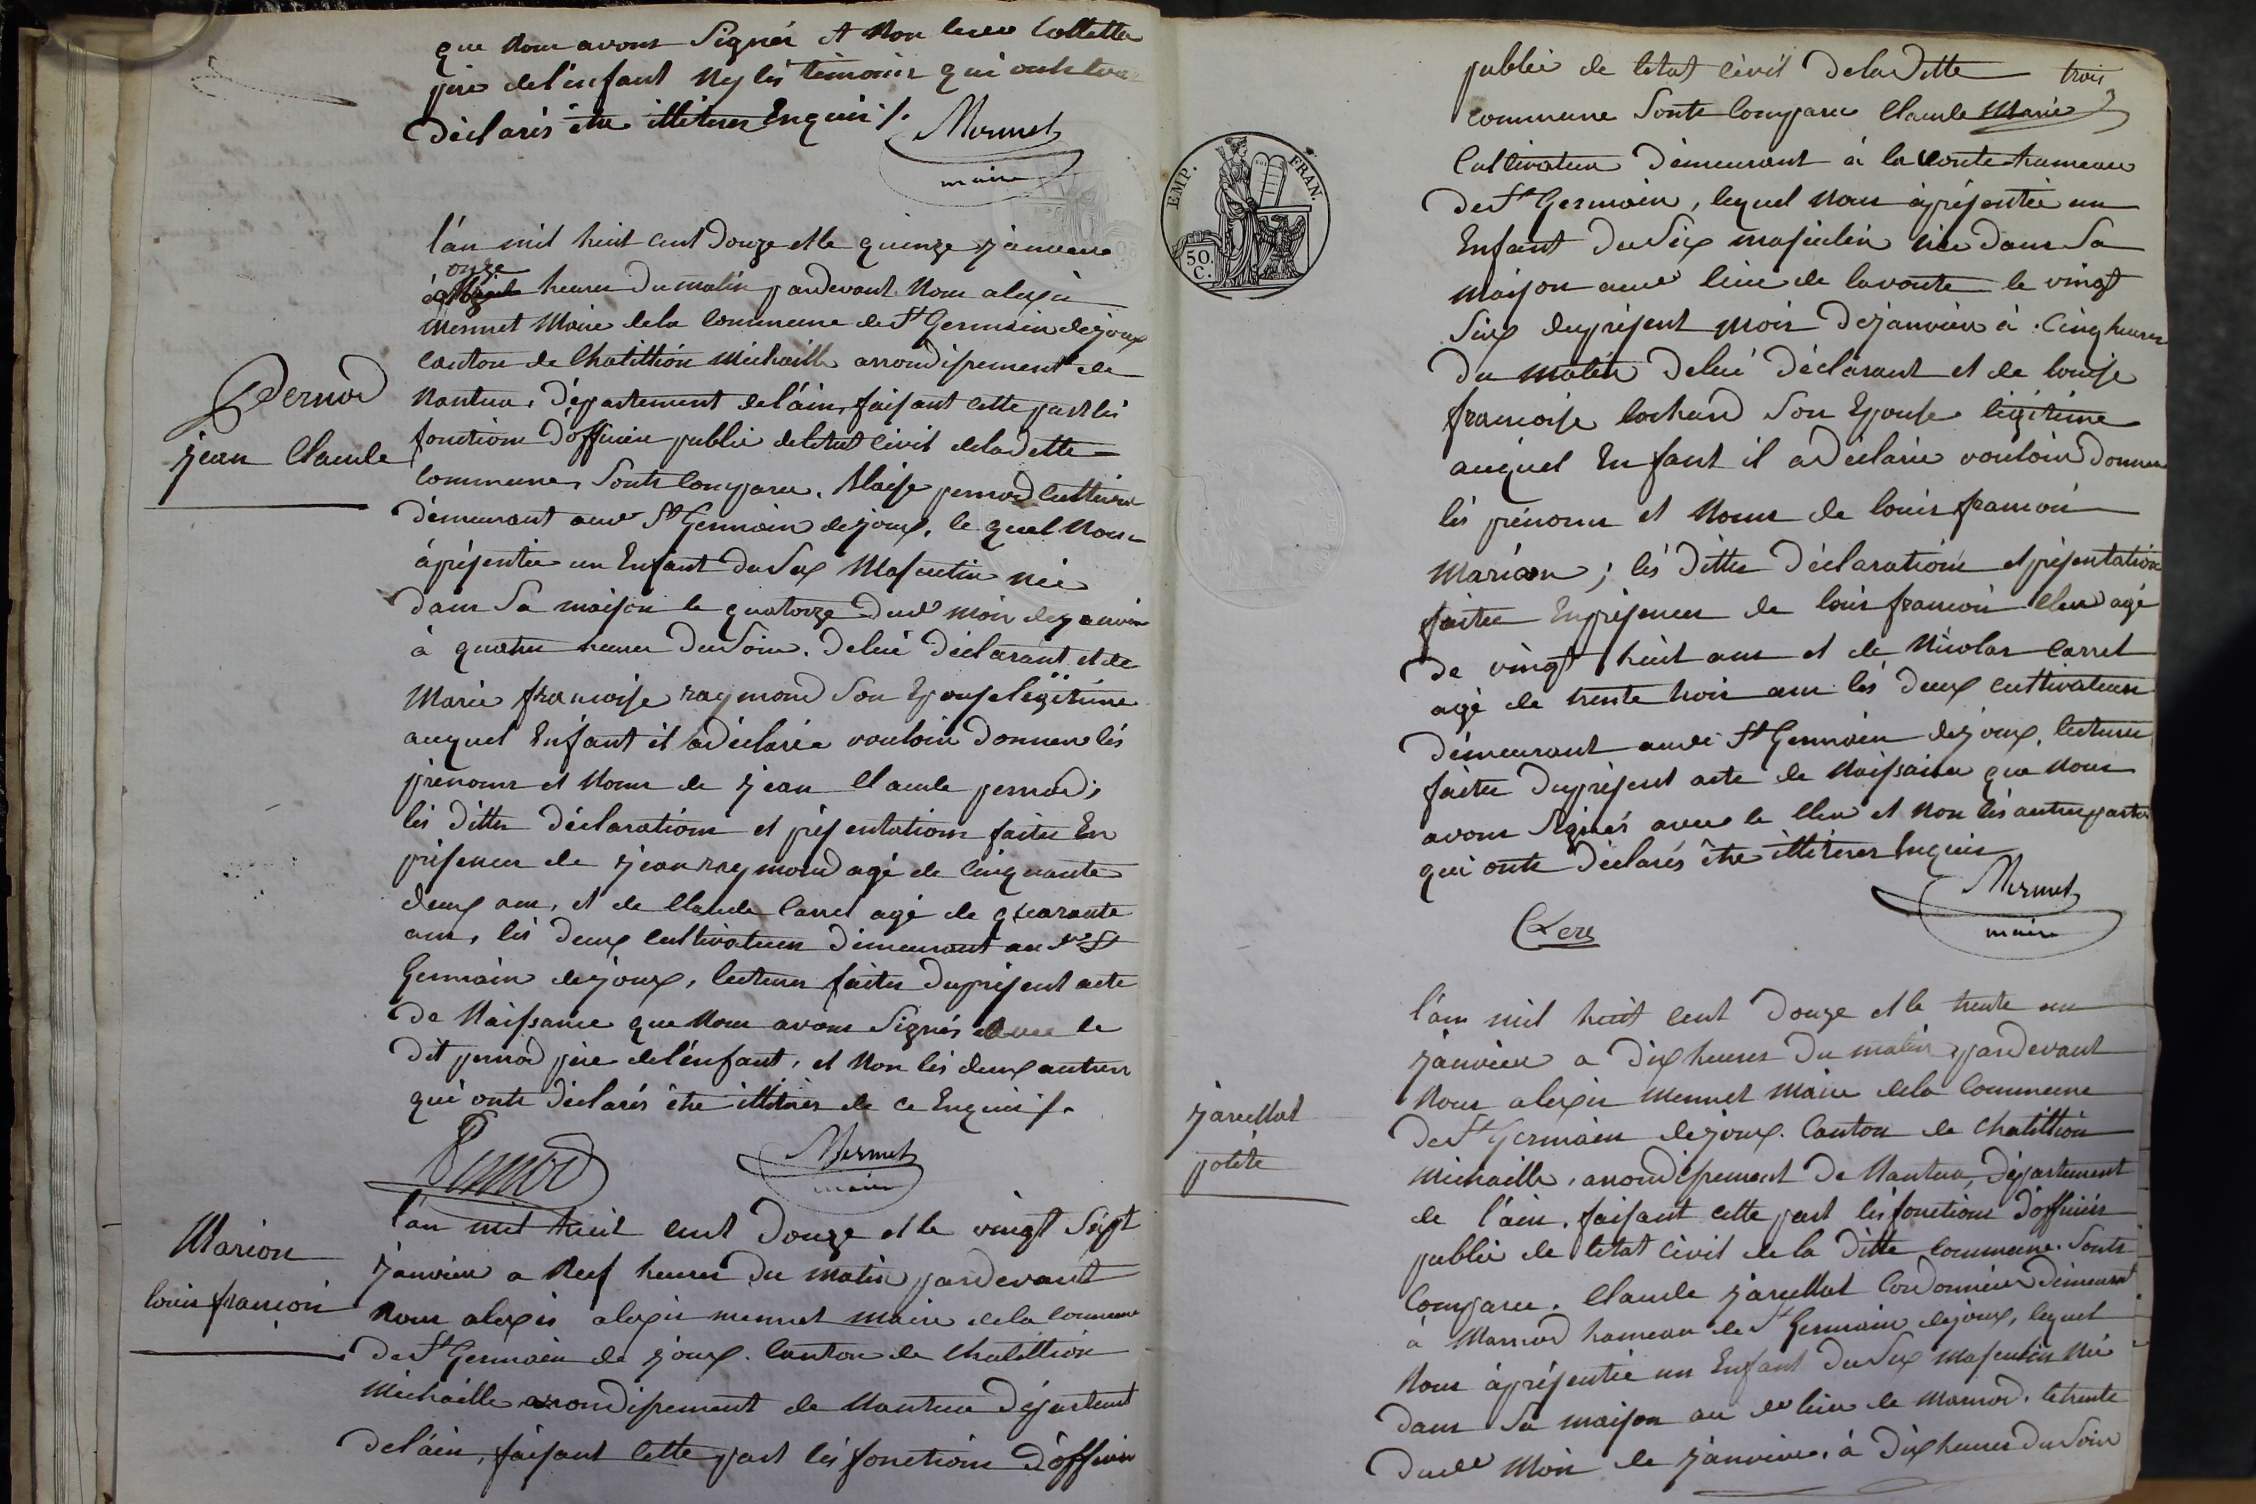 que Nous avons Signés et Non ledit Collette
père de l'enfant Ny lés témoins qui onts
Déclarés être illitérés Enquis /.
Mermet
maire
l'an mil huit cent Douze et le quinze janvier
onze
à heures Du matin pardevant Nous alexis
Mermet Maire dela Commune de St Germain dejoux
canton de Chatillion Michaille arrondissement de
Pernod
Nantua, Département del'ain, faisant cette part lés
fonctions D'officier public deletat Civil deladitte
jean Claude
Commune, Sonts Comparu, Blaise pernod Cultivateur
démeurant aud St Germain dejoux, le quel Nous
àpréséntée un Enfant du Sex Masculin née
dans Sa maison le quatorze dud mois dejanvier
à quatre heures Du Soir. de lui Déclarant et de
Marie francoise raymond Son Epouse légitime
auquel Enfant il adéclarée vouloir Donner lés
prénoms et Noms de jean Claude pernod;
lés dittes Déclarations et présentations faites En
présence de jean raymond agé de Cinquante
deux ans, et de Claude Carret agé de quarante
ans, lés deux cultivateurs démeurant au dt St
Germain dejoux, lecture faites Duprésent acte
De Naissance que Nous avons Signés avec le
Dit pernod père del'énfant, et Non lés deux autres
qui onts Déclarés être illitérés de ce Enquis /.
Pernod
Mermet
maire
l'an mil huit cent Douze et le vingt Sept
Marion
janvier a Neuf heures Du matin pardevant
louis françois
Nous alexis alexis mermet maire dela Commune
De St Germain de joux. Canton de Chatillion
Michaille arrondissement de Nantua Département
del'ain, faisant Cette part lés fonctions D'officier
trois
public de letat Civil deladitte
commune Sonts Comparu Claude Marion
Cultivateur Démeurant à la voute hameau
de St Germain, lequel Nous àpréséntée un
Enfant du Sex masculin née dans Sa
maison aud lieu de lavoute le vingt
Six duprésent mois Dejanvier à Cinq heures
Du matin Delui Déclarant et de louise
francoise lochard Son Epouse légitime
auquel Enfant il adéclarée vouloir Donner
lés prénoms et Noms de louis francois
Marion; lés dittes Déclarations et présentations
faites Enprésence de louis francois Clerc agé
De vingt huit ans et de Nicolas Carret
agé de trente trois ans lés deux cultivateurs
démeurant audit St Germain dejoux, lecture
faites Duprésent acte de Naissance que Nous
avons Signés avec le Clerc et Non lés autres parties
qui onts Déclarés être illitérés Enquis
Mermet
maire
Clerc
l'an mil huit cent Douze et le trente un
janvier a Dix heures Du matin, pardevant
Nous alexis Mermet Maire dela Commune
jarcellat
De St Germain dejoux. Canton de Chatillion
polite
Michaille, arrondissement De Nantua, Département
de l'ain, faisant cette part lés fonctions D'officier
public de létat Civil de la Ditte Commune. Sonts
Comparu, Claude jarcellat Cordonnier Démeurant
à Marnod hameau de St Germain dejoux, lequel
Nous àpréséntée un Enfant du Sex masculin Née
dans Sa maison au dt lieu de Marnod, le trente
Dudt Mois de janvier, à Dix heures Du Soir
EMP. FRAN.
50. C.